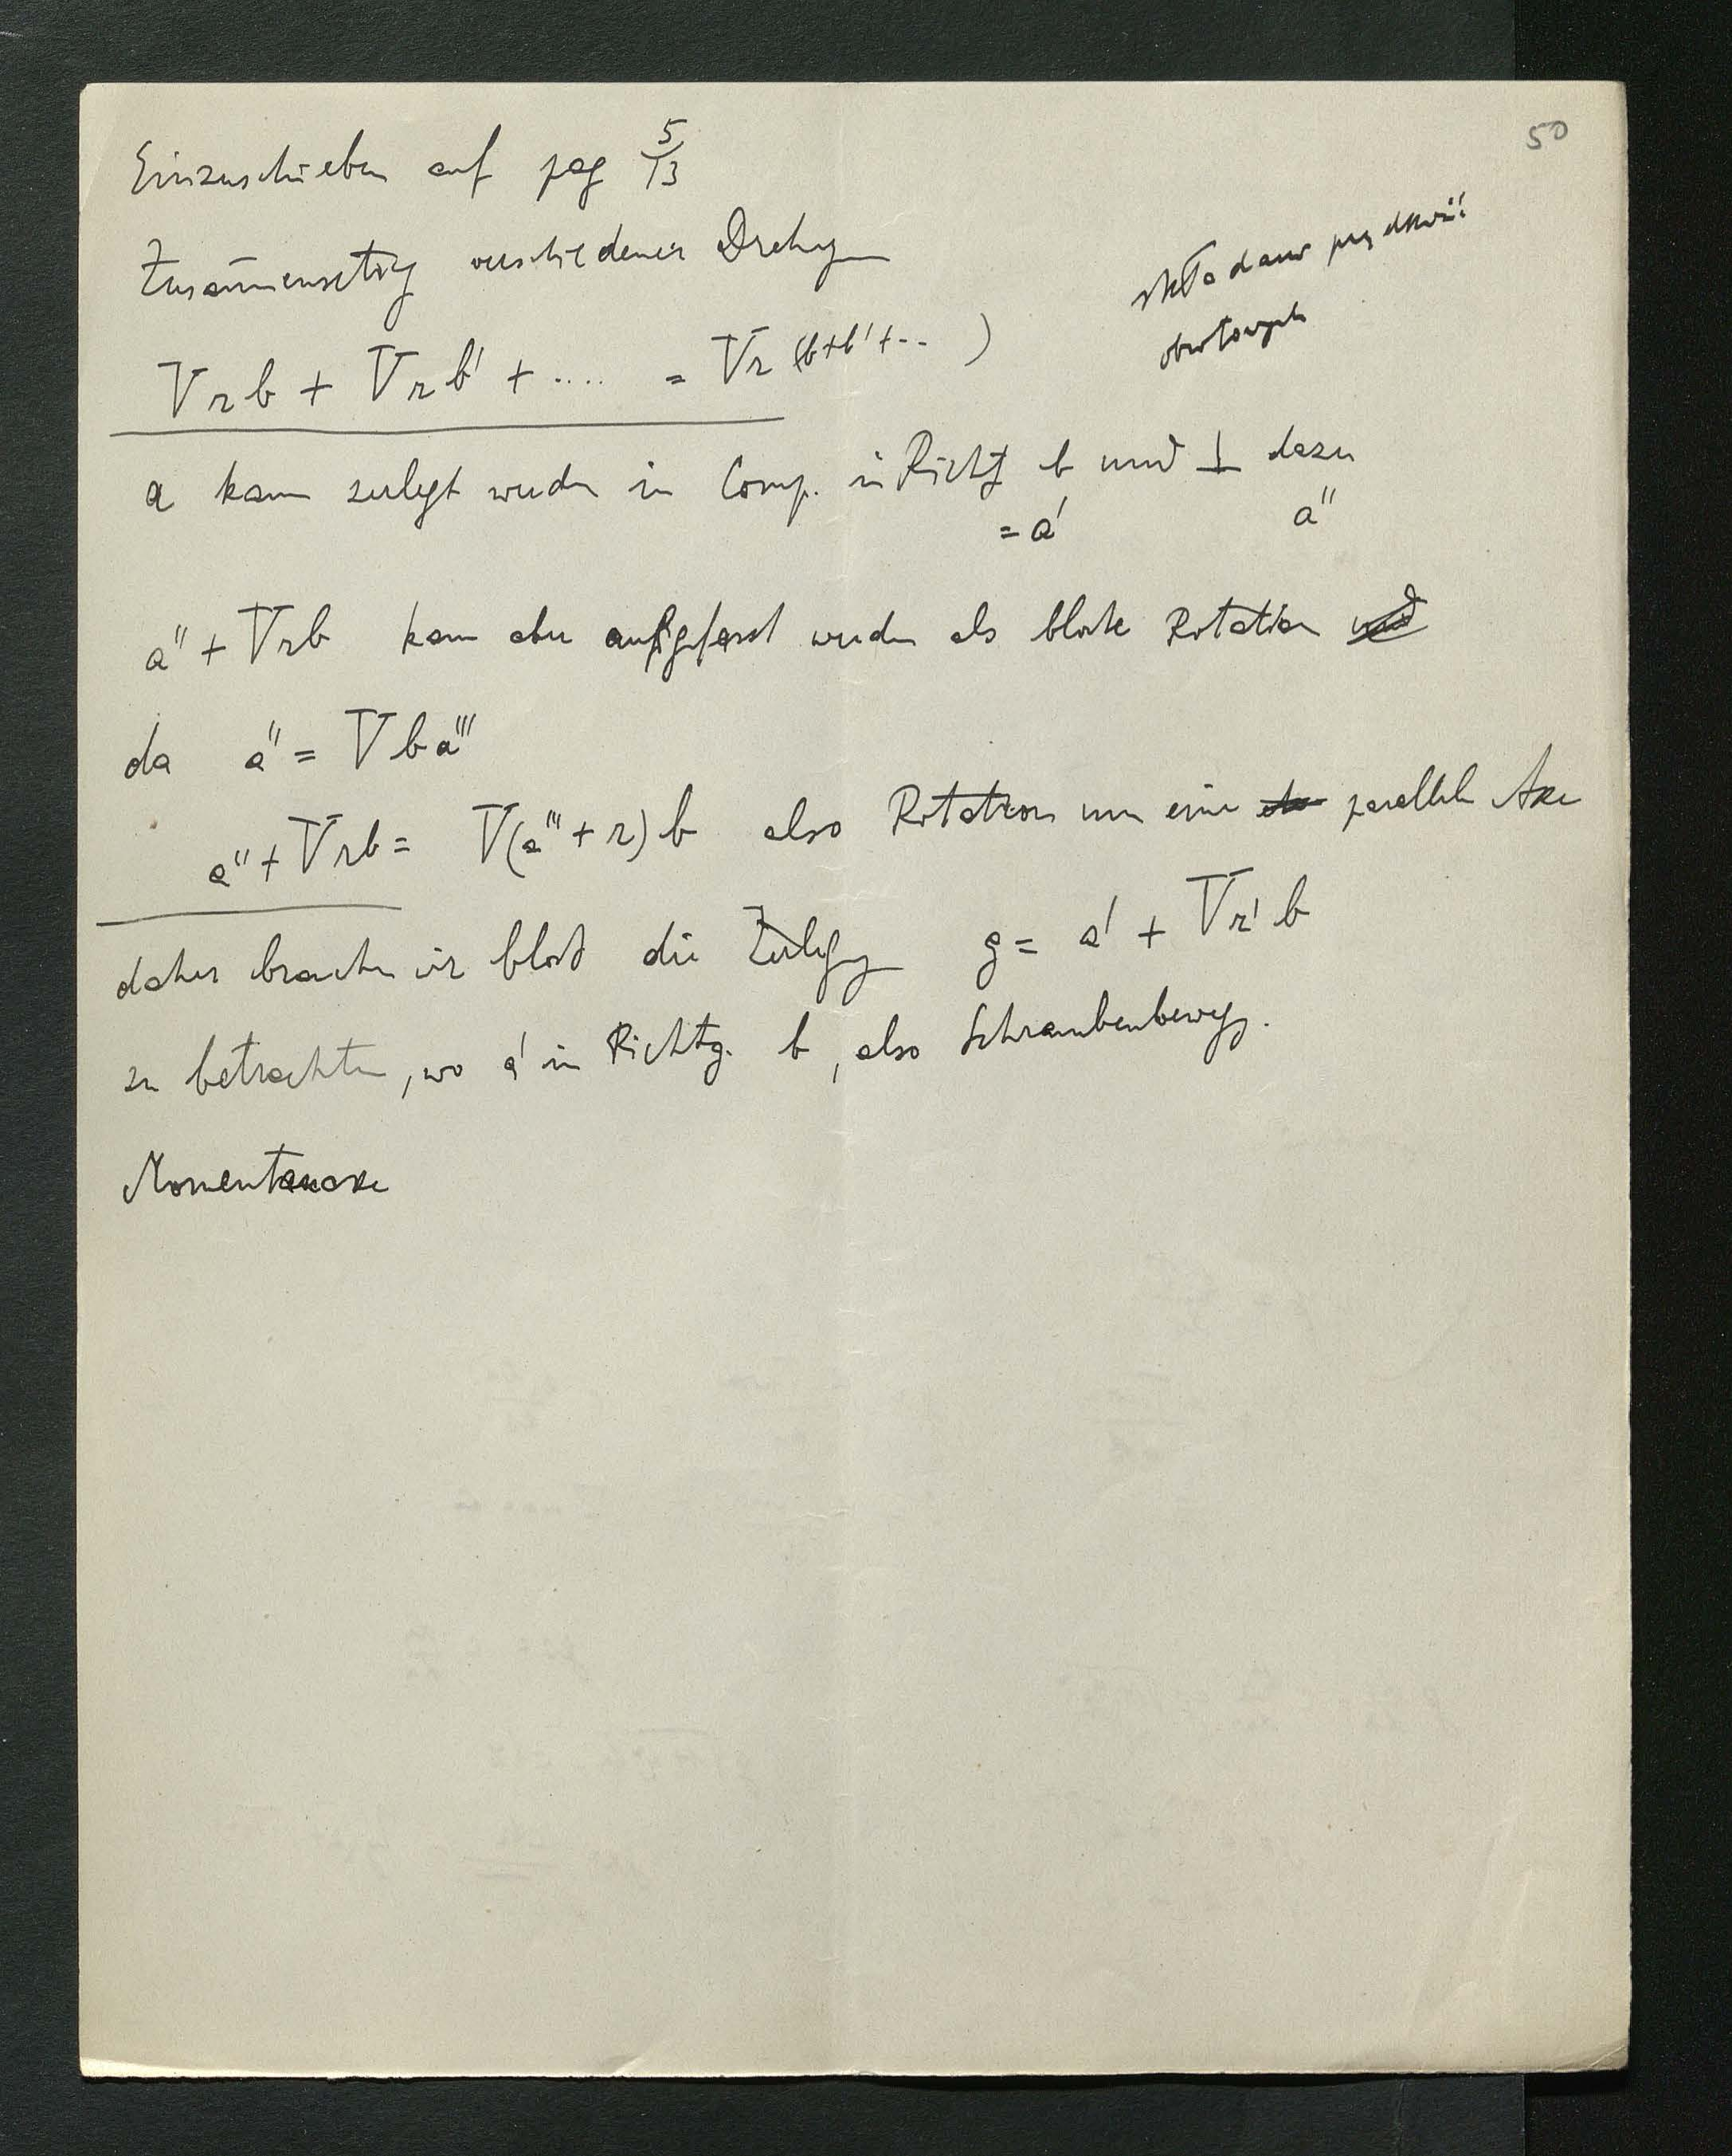 50
Einzuschieben auf pag 5/13
Zusam̅ensetzg verschiedener Drehgen
składanie prędkości
obrotowych
Vrb + Vrb' + .... = Vr(b+b'+-- )
a kann zerlegt werden in Comp. in Richtg b und ⊥ dazu
= a' a''
a'' + Vrb kann aber aufgefasst werden als blosse Rotation und
da a'' = Vba'''
a'' + Vrb = V(a''' + r)b also Rotation um eine parallele Axe
daher brauchen wir bloss die Zerlegg g = a' + Vr'b
zu betrachten, wo a' in Richtg. b, also Schraubenbewegg.
Momentanaxe